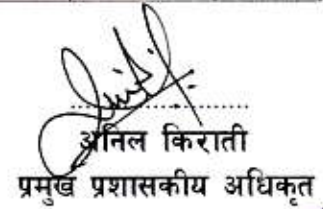 अनिल किराती
प्रमुख प्रशासकीय अधिकृत